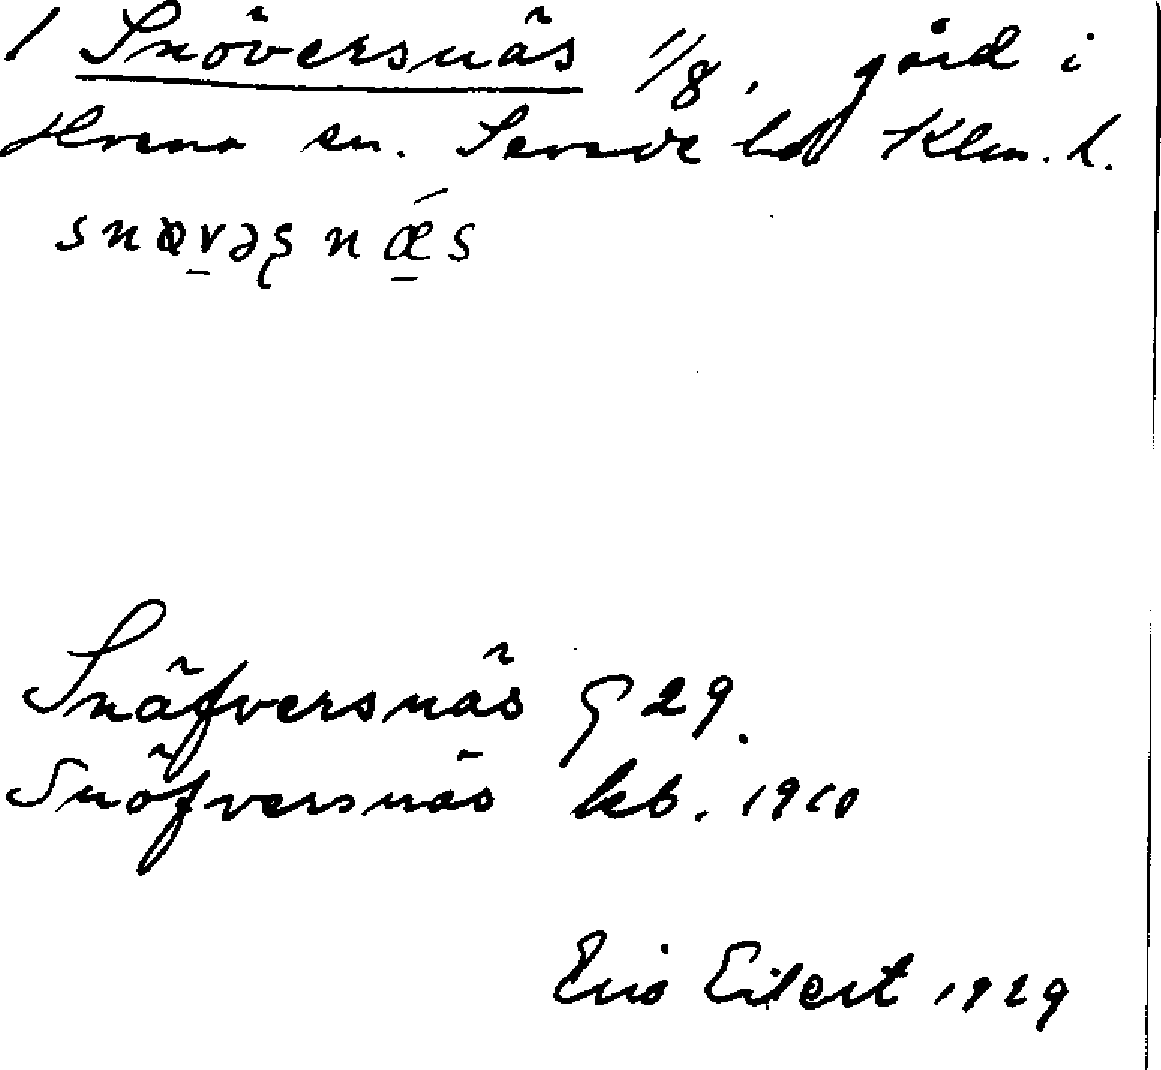 1 Snöversnäs 1/8, gård i
Hvena sn. Sevede hd Klm. l.
snøvəṣnǽs
Snäfversnäs G 29.
Snöfversnäs kb. 1910
Eilert 1929